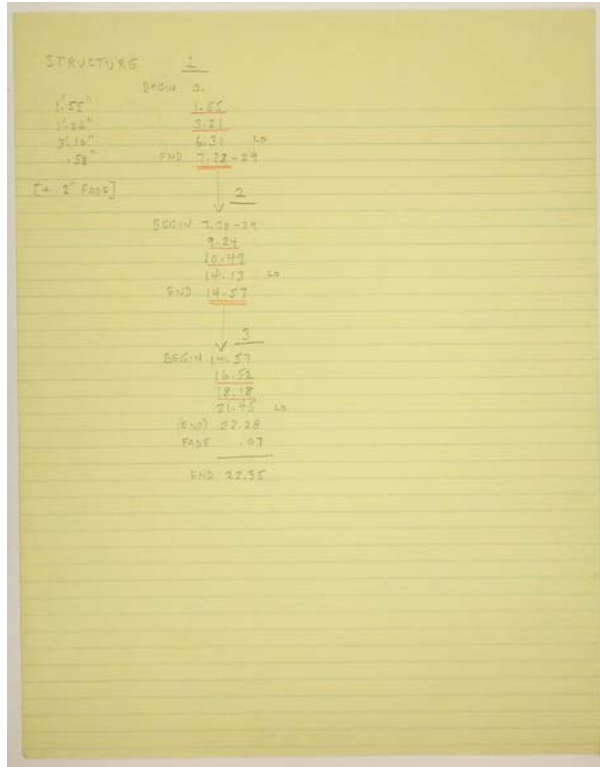 STRUCTURE 1
BEGIN 0.
1'.55" 1.55
1'.26" 3.21
3'.10" 6.31 LO
.58" END 7.28-29
[+ 2" FADE]
2
BEGIN 7.28-29
9.24
10.49
14.13 LO
END 14.57
3
BEGIN 14.57
16.52
18.18
21.45 LO
(END) 22.28
FADE .07
END 22.35